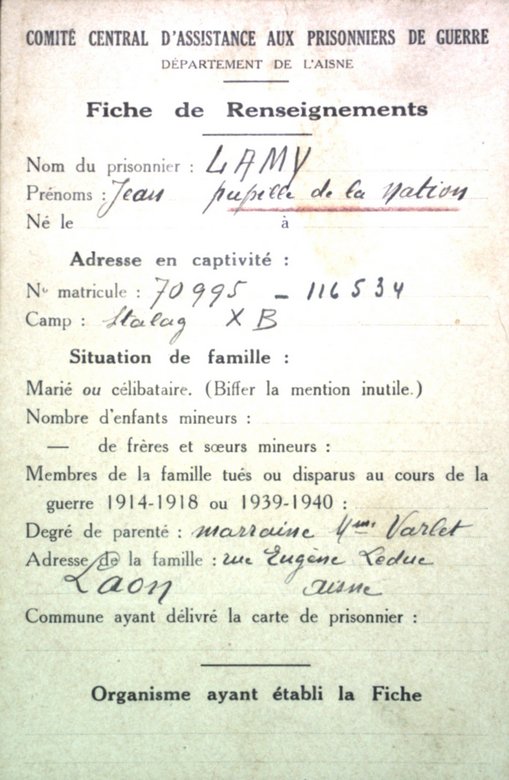 COMITÉ CENTRAL D'ASSISTANCE AUX PRISONNIERS DE GUERRE
DÉPARTEMENT DE L'AISNE
Fiche de Renseignements
Nom du prisonnier : LAMY
Prénoms : Jean pupille de la Nation
Né le à
Adresse en captivité :
No matricule : 70995 – 116534
Camp : Stalag X B
Situation de famille :
Marié ou célibataire. (Biffer la mention inutile.)
Nombre d'enfants mineurs :
— de frères et sœurs mineurs :
Membres de la famille tués ou disparus au cours de la
guerre 1914-1918 ou 1939-1940 :
Degré de parenté : marraine Mme Varlet
Adresse de la famille : rue Eugène Leduc
Laon aisne
Commune ayant délivré la carte de prisonnier :
Organisme ayant établi la Fiche